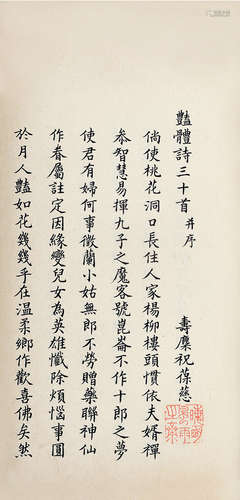 豔體詩三十首 并序
壽麋祝葆慈
倘使桃花洞口長住人家楊柳樓頭慣依夫婿禪
參智慧易揮九子之魔客號崑崙不作十郎之夢
使君有婦何事徵蘭小姑無郎不勞贈藥聯神仙
作眷屬註定因緣變兒女為英雄懺除煩惱事圓
於月人豔如花幾幾乎在溫柔鄉作歡喜佛矣然